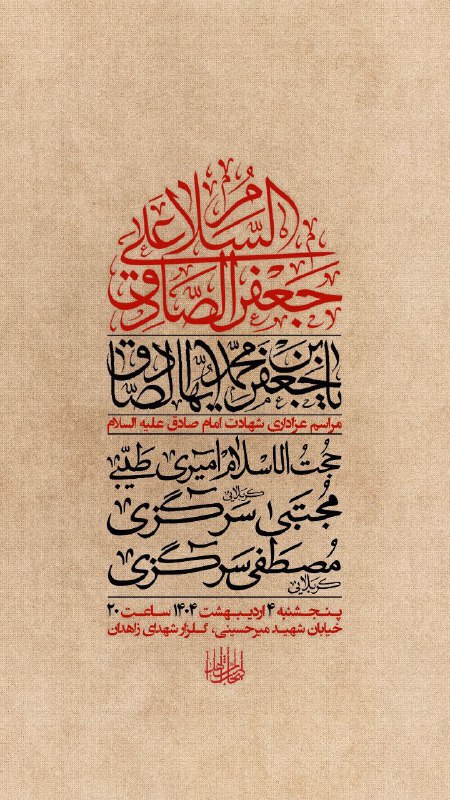 السَّلامُ عَلی
جَعفَرِ الصّادِق
یا جَعفَرَ بْنَ مُحَمَّدٍ اَیُّهَا الصّادِقُ
مراسم عزاداری شهادت امام صادق علیه السلام
حجت الاسلام امیری طیبی
کربلایی مجتبی سرگزی
کربلایی مصطفی سرگزی
پنجشنبه ۴ اردیبهشت ۱۴۰۴ ساعت ۲۰
خیابان شهید میرحسینی، گلزار شهدای زاهدان